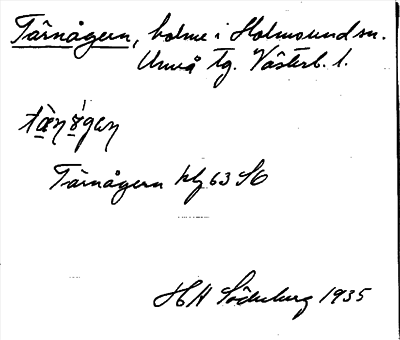 Tärnågern, holme i Holmsund sn.
Umeå tg. Västerb. l.
Tärnågern kbl 63 SO
H H Söderberg 1935